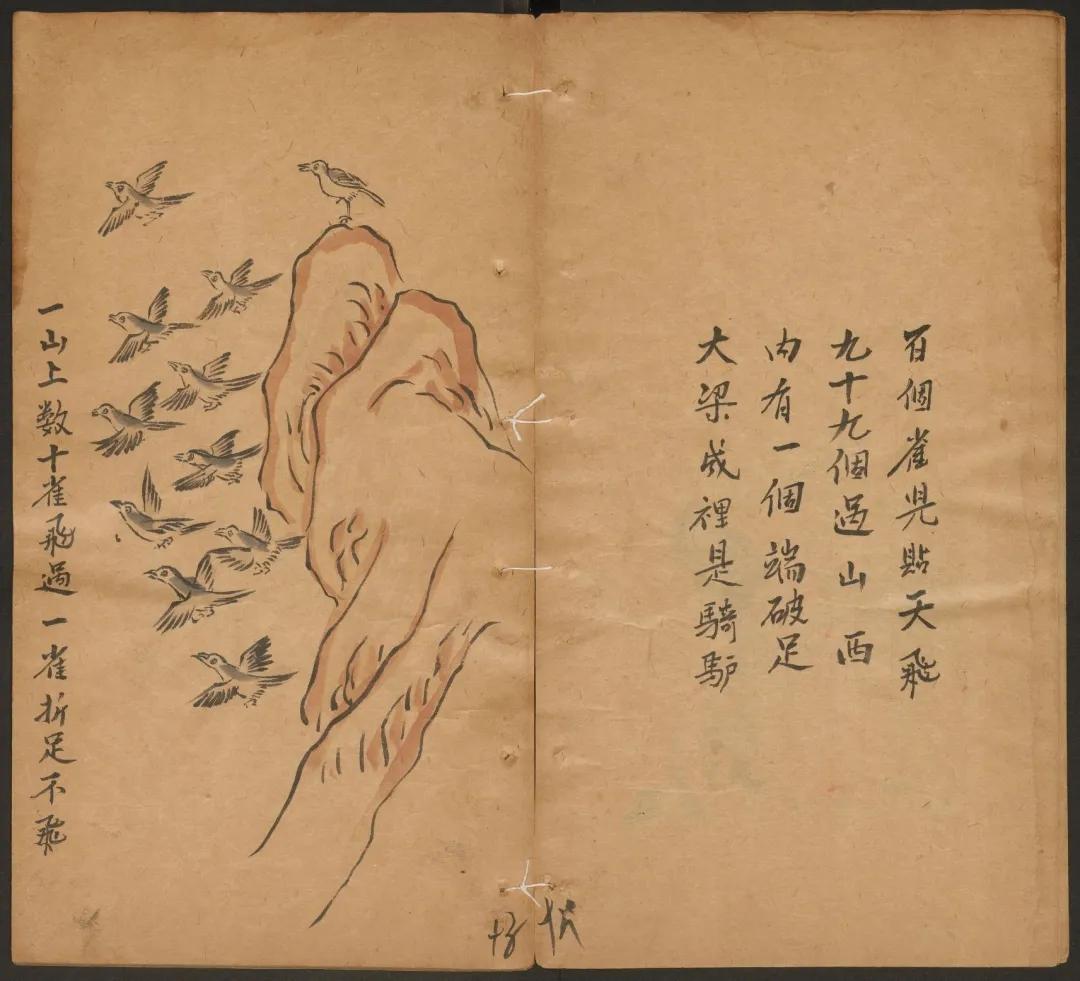 百個雀児貼天飛
九十九個過山西
内有一個端破足
大梁城裡是騎馿
一山上数十雀飛過一雀折足不飛